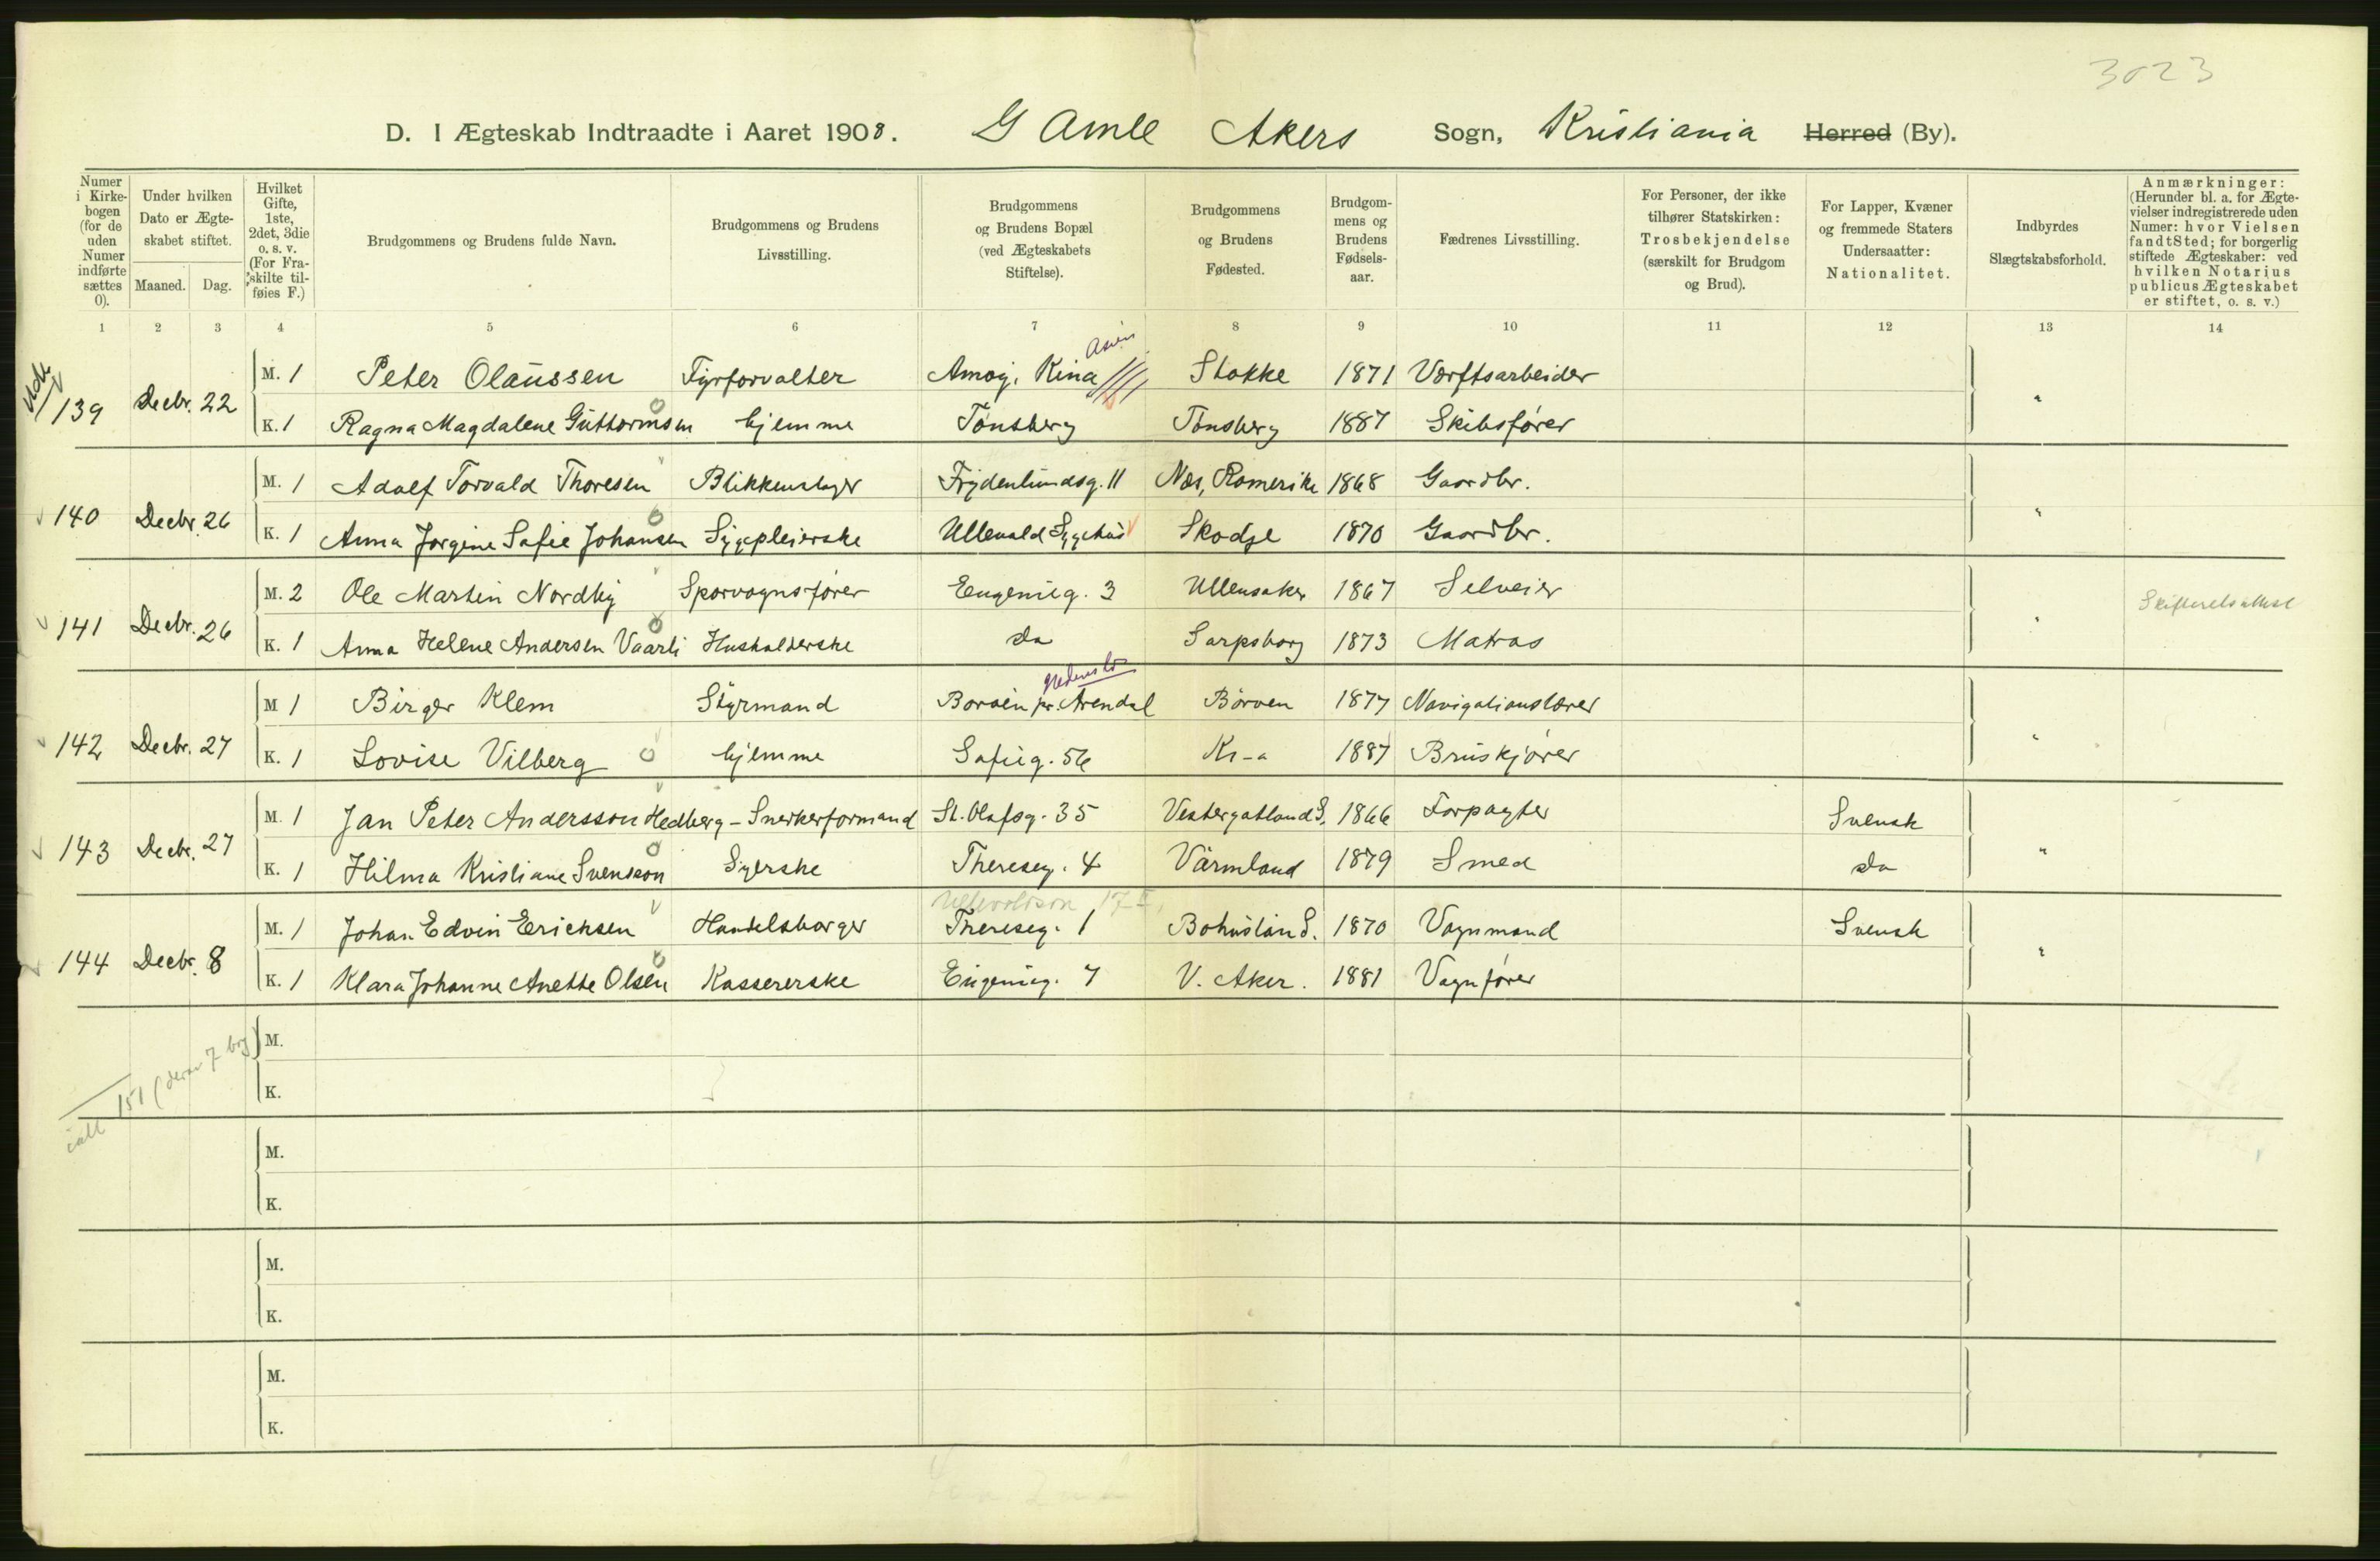 3023
D. I Ægteskab Indtraadte i Aaret 1908. Gamle Akers Sogn, Kristiania Herred (By).
Numer i Kirkebogen (for de uden Numer indførte sættes 0).
Under hvilken Dato er Ægteskabet stiftet.
Maaned. Dag.
Hvilket Gifte, 1ste, 2det, 3die o. s. v. (For Fraskilte tilføies F.)
Brudgommens og Brudens fulde Navn.
Brudgommens og Brudens Livsstilling.
Brudgommens og Brudens Bopæl (ved Ægteskabets Stiftelse).
Brudgommens og Brudens Fødested.
Brudgommens og Brudens Fødselsaar.
Fædrenes Livsstilling.
For Personer, der ikke tilhører Statskirken: Trosbekjendelse (særskilt for Brudgom og Brud).
For Lapper, Kvæner og fremmede Staters Undersaatter: Nationalitet.
Indbyrdes Slægtskabsforhold.
Anmærkninger: (Herunder bl. a. for Ægtevielser indregistrerede uden Numer: hvor Vielsen fandt Sted; for borgerlig stiftede Ægteskaber: ved hvilken Notarius publicus Ægteskabet er stiftet, o. s. v.)
1 2 3 4 5 6 7 8 9 10 11 12 13 14
Asien
139 Decbr. 22 M. 1 Peter Olaussen Fyrforvalter Amoy, Kina Stokke 1871 Værftsarbeider
K. 1 Ragna Magdalene Guttormsen hjemme Tønsberg Tønsberg 1887 Skibsfører "
140 Decbr. 26 M. 1 Adolf Torvald Thoresen Blikkenslager Frydenlundsg. 11 Næs, Romerike 1868 Gaardbr.
K. 1 Anna Jørgine Sofie Johansen Sygepleierske Ullevold Sygehus Skodje 1870 Gaardbr. "
141 Decbr. 26 M. 2 Ole Martin Nordby Sporvognsfører Eugenieg. 3 Ullensaker 1867 Selveier Skifteretsattest
K. 1 Anna Helene Andersen Vaarli Husholderske do Sarpsborg 1873 Matros "
142 Decbr. 27 M 1 Birger Klem Styrmand Borøen pr. Arendal Börøen 1877 Navigationslærer
K. 1 Lovise Vilberg hjemme Sofieg. 56 Kr-a 1887 Bruskjører "
143 Decbr. 27 M. 1 Jan Peter Andersson Hedberg - Snekkerformand St. Olafsg. 35 Vestergøtland S. 1866 Forpagter Svensk
K. 1 Hilma Kristiane Svensson Syerske Thereseg. 4 Värmland 1879 Smed do "
144 Decbr. 8 M. 1 Johan Edvin Erichsen Handelsborger Thereseg. 1 Bohuslän S. 1870 Vognmand Svensk
K. 1 Klara Johanne Anette Olsen Kassererske Eugenieg. 7 V. Aker. 1881 Vognfører "
M.
K.
ialt 151 (derav 7 brg)
M.
K.
M.
K.
M.
K.